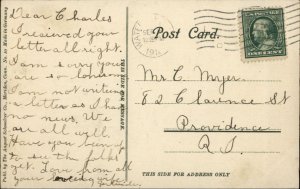 Dear Charles
I received your
letter all right.
I am sorry you
are so lonesome.
I am not writing
a letter as I have
no news. We
are all well.
Have you been
to see the folks
yet. Love from all
your loving
Publ. by The August Schmelzer Co., Meriden, Conn. No. Made in Germany
THIS SIDE FOR MESSAGE.
Post Card.
SEP
191
ONE CENT
Mr. C. Myer
82 Clarence St
Providence
R.I.
THIS SIDE FOR ADDRESS ONLY